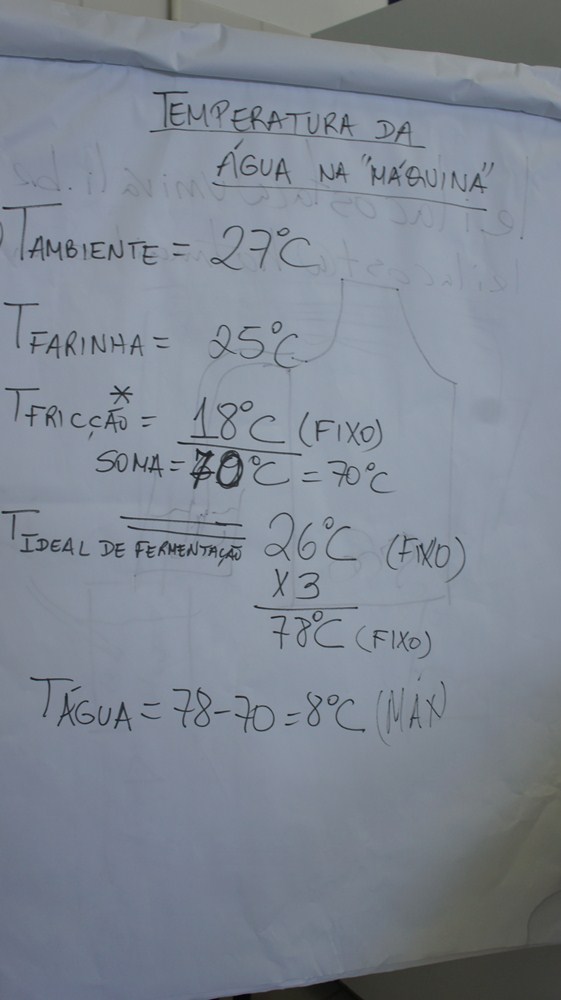 TEMPERATURA DA
ÁGUA NA "MÁQUINA"
TAMBIENTE = 27°C
TFARINHA = 25°C
TFRICÇÃO* = 18°C (FIXO)
SOMA = 70°C = 70°C
TIDEAL DE FERMENTAÇÃO 26°C (FIXO)
X3
78°C (FIXO)
TÁGUA = 78-70 = 8°C (MÁX)